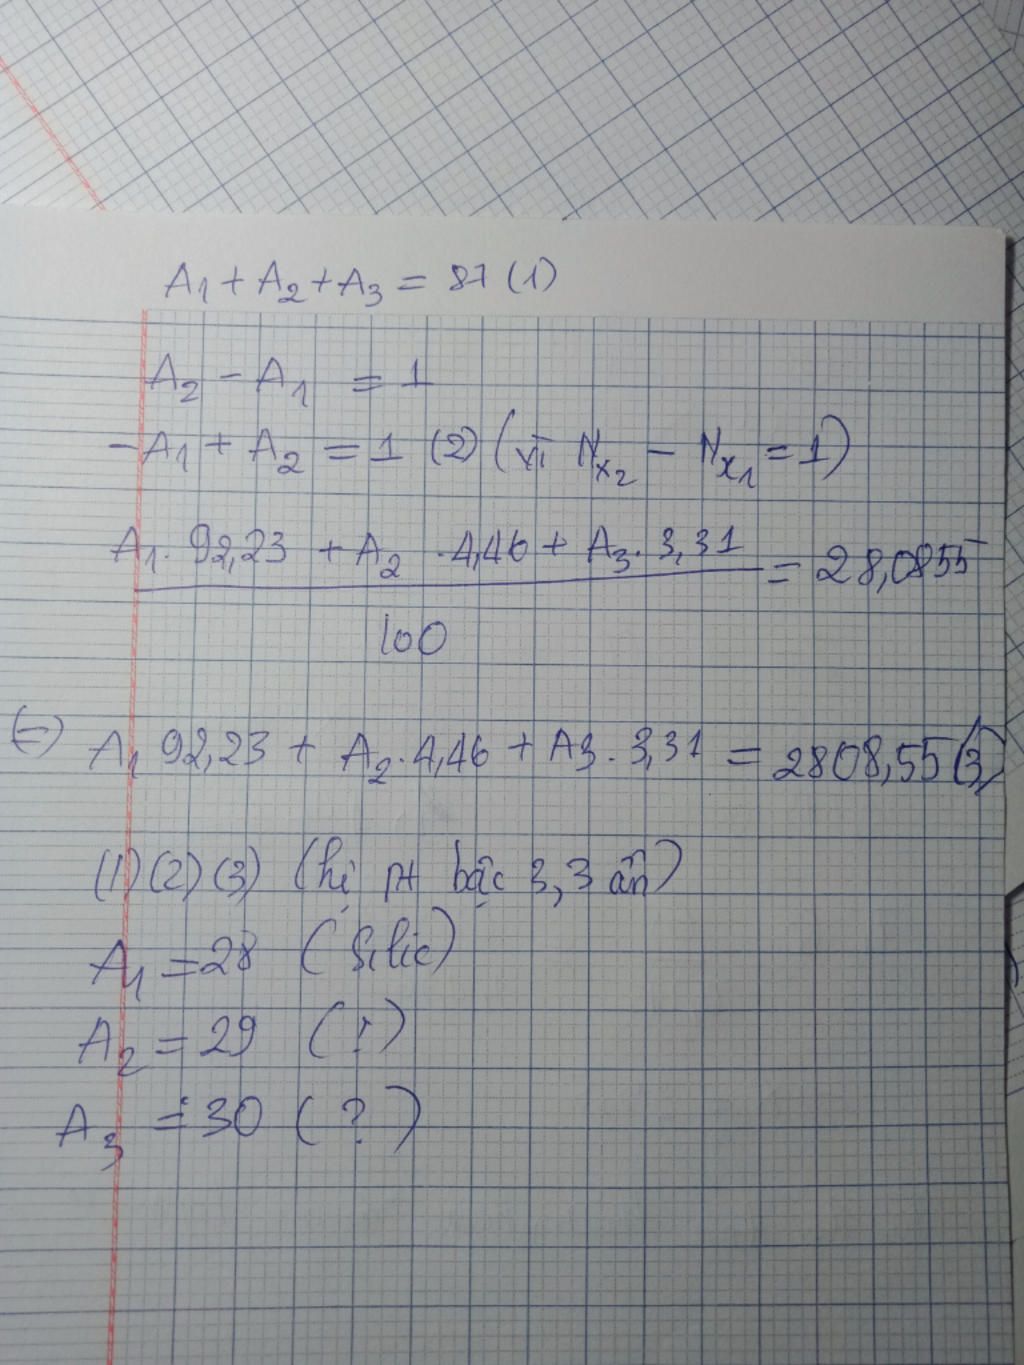 A₁ + A₂ + A₃ = 87 (1)
A₂ - A₁ = 1
-A₁ + A₂ = 1 (2) (vì Nx₂ - Nx₁ = 1)
A₁. 92,23 + A₂ .4,46 + A₃. 3,31 = 28,0855
100
(=) A₁ 92,23 + A₂.4,46 + A3. 3,31 = 2808,55 (3)
(1) (2) (3) (hệ pt bậc 3, 3 ẩn)
A₁ = 28 (Silic)
A₂ = 29 (?)
A₃ = 30 (?)